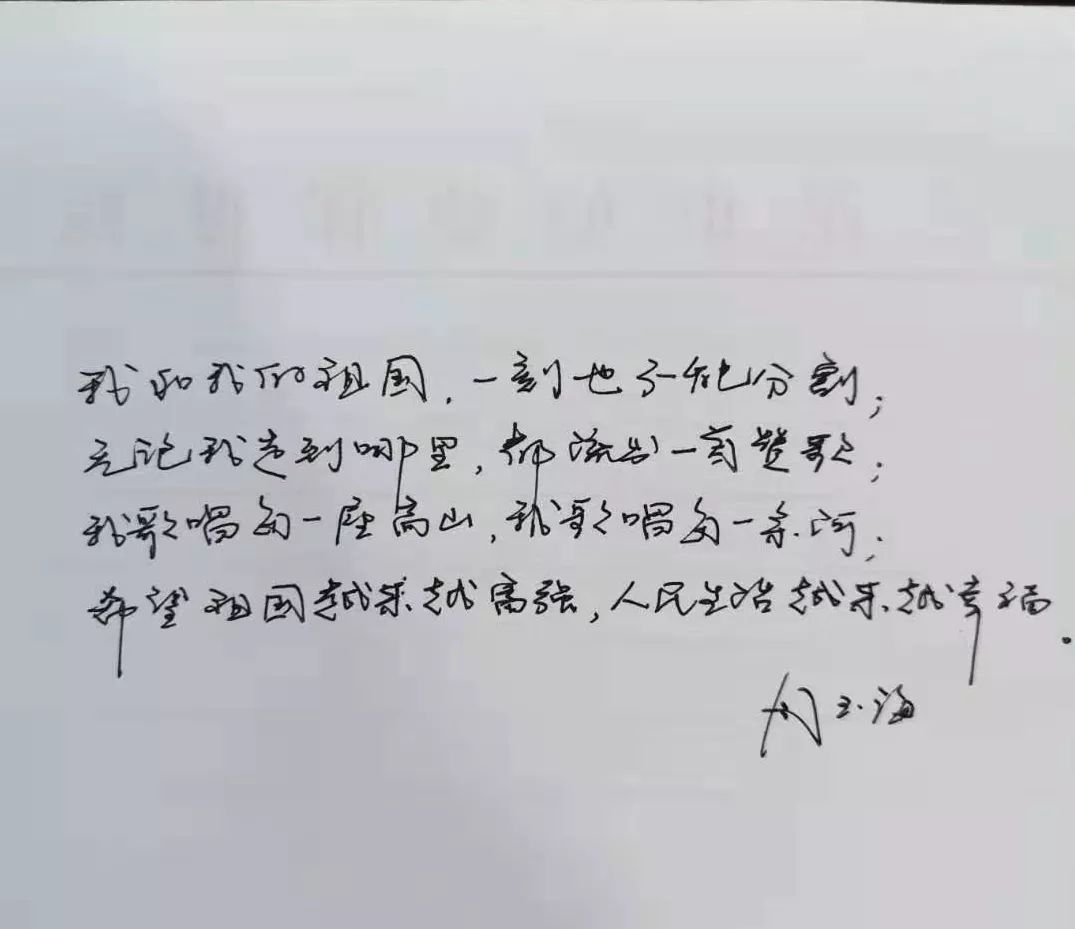 我和我的祖国，一刻也不能分割；
无论我走到哪里，都流出一首赞歌；
我歌唱每一座高山，我歌唱每一条河；
希望祖国越来越富强，人民生活越来越幸福。
周玉海